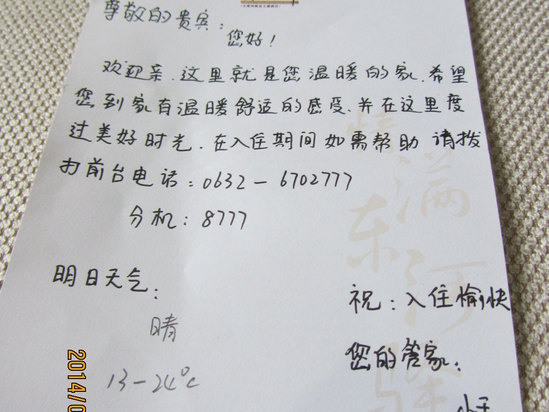 尊敬的贵宾：
您好！
欢迎亲，这里就是您温暖的家，希望
您到家有温暖舒适的感受，并在这里度
过美好时光，在入住期间如需帮助 请拨
打前台电话：0632-6702777
分机：8777
明日天气：
晴
13-24°C
祝：入住愉快
您的管家：
2014/0